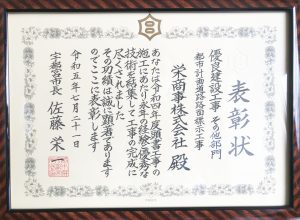 表彰状
優良建設工事 その他部門
都市計画道路路面標示工事
栄商事株式会社 殿
あなたは令和四年度請負工事の
施工にあたり永年の経験と優秀な
技術を結集して工事の完成に
尽くされました
その功績は誠に顕著であります
のでここに表彰します
令和五年七月二十一日
宇都宮市長 佐藤栄一